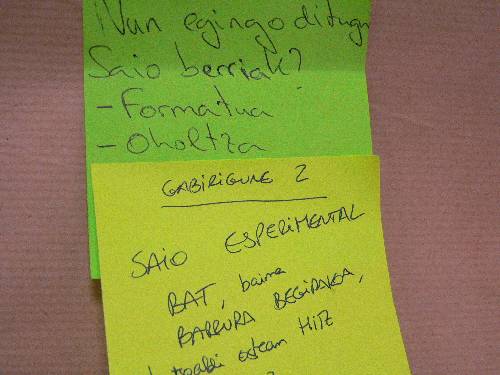 Nun egingo ditugu
Saio berriak?
- Formatua
- Oholtza
GABIRIGUNE 2
SAIO ESPERIMENTAL
BAT, baina
BARRURA BEGIRAKOA,
HITZ